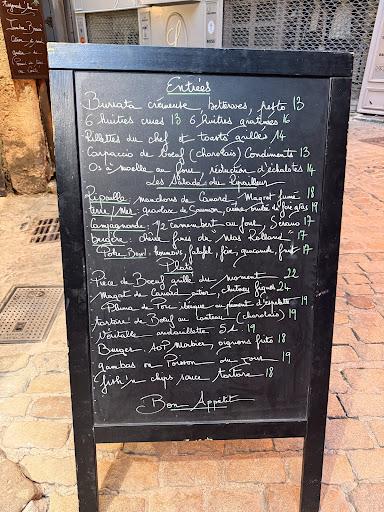 Entrées
Burrata crémeuse, betteraves, pesto 13
6 huîtres crues 13 6 huîtres gratinées 16
Rillettes du chef et toasts grillés 14
Carpaccio de bœuf (charolais) Condiments 13
Os à moelle au four, réduction d'échalotes 14
Les Salades du Ripailleur
Ripaille: manchons de Canard, Magret fumé 18
Terre/Mer: gravlax de Saumon, crème brulée de foie gras 19
Campagnarde: 1/2 camembert au four, Serano 17
Bergère: chèvre frais du Mas Rolland 17
Poke Bowl: Houmous, falafel, fèves, guacamole, 17
Plats
Pièce de Boeuf grillé du moment 22
Magret de Canard entier, chutney figues 24
Pluma de Porc ibérique au piment d'espelette 19
tartare de Boeuf au couteau (charolais) 19
Véritable andouillette 5A 19
Burger AOP Marbier, oignons frits 18
gambas ou Poisson du jour 19
fish'n chips sauce tartare 18
Bon Appétit